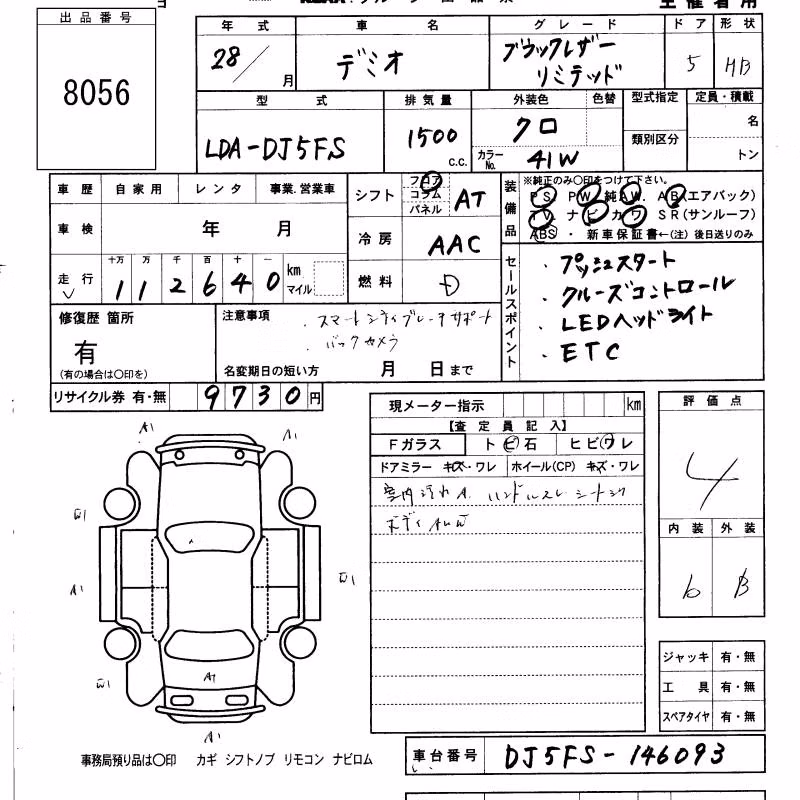 主催者用
出品番号
8056
年式 車名 グレード ドア 形状
28/ 月 デミオ ブラックレザーリミテッド 5 HB
型式 排気量 外装色 色替 型式指定 定員・積載
LDA-DJ5FS 1500 c.c. クロ 名
カラーNo. 41W 類別区分 トン
車歴 自家用 レンタ 事業.営業車
車検 年 月
走行 十万 万 千 百 十 一
112640 km マイル
シフト フロア コラム パネル AT
冷房 AAC
燃料 D
装備品 ※純正のみ〇印をつけて下さい。
PS. PW. 純AW. AB(エアバック)
TV ナビ カワ SR(サンルーフ)
ABS・新車保証書←(注)後日送りのみ
セールスポイント
・プッシュスタート
・クルーズコントロール
・LEDヘッドライト
・ETC
修復歴 箇所
有
(有の場合は〇印を)
注意事項
・スマートシティブレーキサポート
バックカメラ
名変期日の短い方 月 日まで
リサイクル券 有・無 9730円
現メーター指示 km
【査定員記入】
Fガラス トビ石 ヒビワレ
ドアミラー キズ・ワレ ホイール(CP) キズ・ワレ
室内汚れA. ハンドルスレ
ボディAUW
評価点
4
内装 外装
b B
A1
A1
W1
A1
W1
W1
A1
A1
ジャッキ 有・無
工具 有・無
スペアタイヤ 有・無
事務局預り品は〇印 カギ シフトノブ リモコン ナビロム
車台番号 DJ5FS-146093